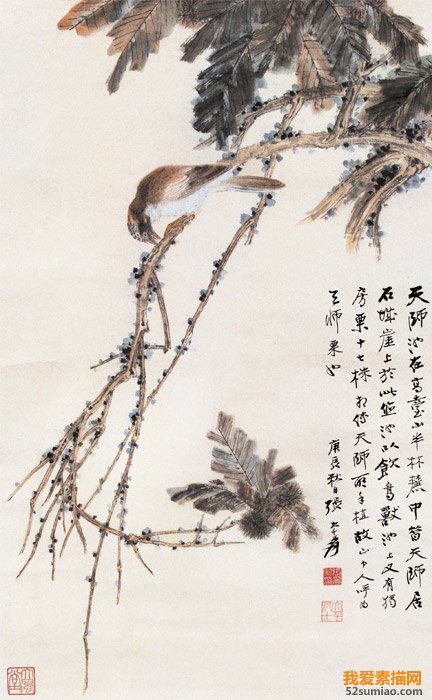 天師池在高臺山半林麓中昔天師居
石城崖上於此池以飲鳥獸池上又有獨
房栗十七株相傳天師所手植故山中人呼為
天師栗也
庚辰秋日張大千爰
我爱素描网
52sumiao.com